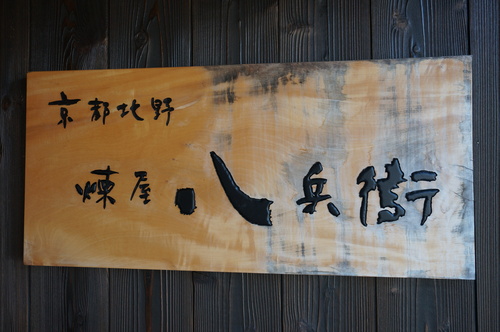 京都北野
煉屋八兵衛